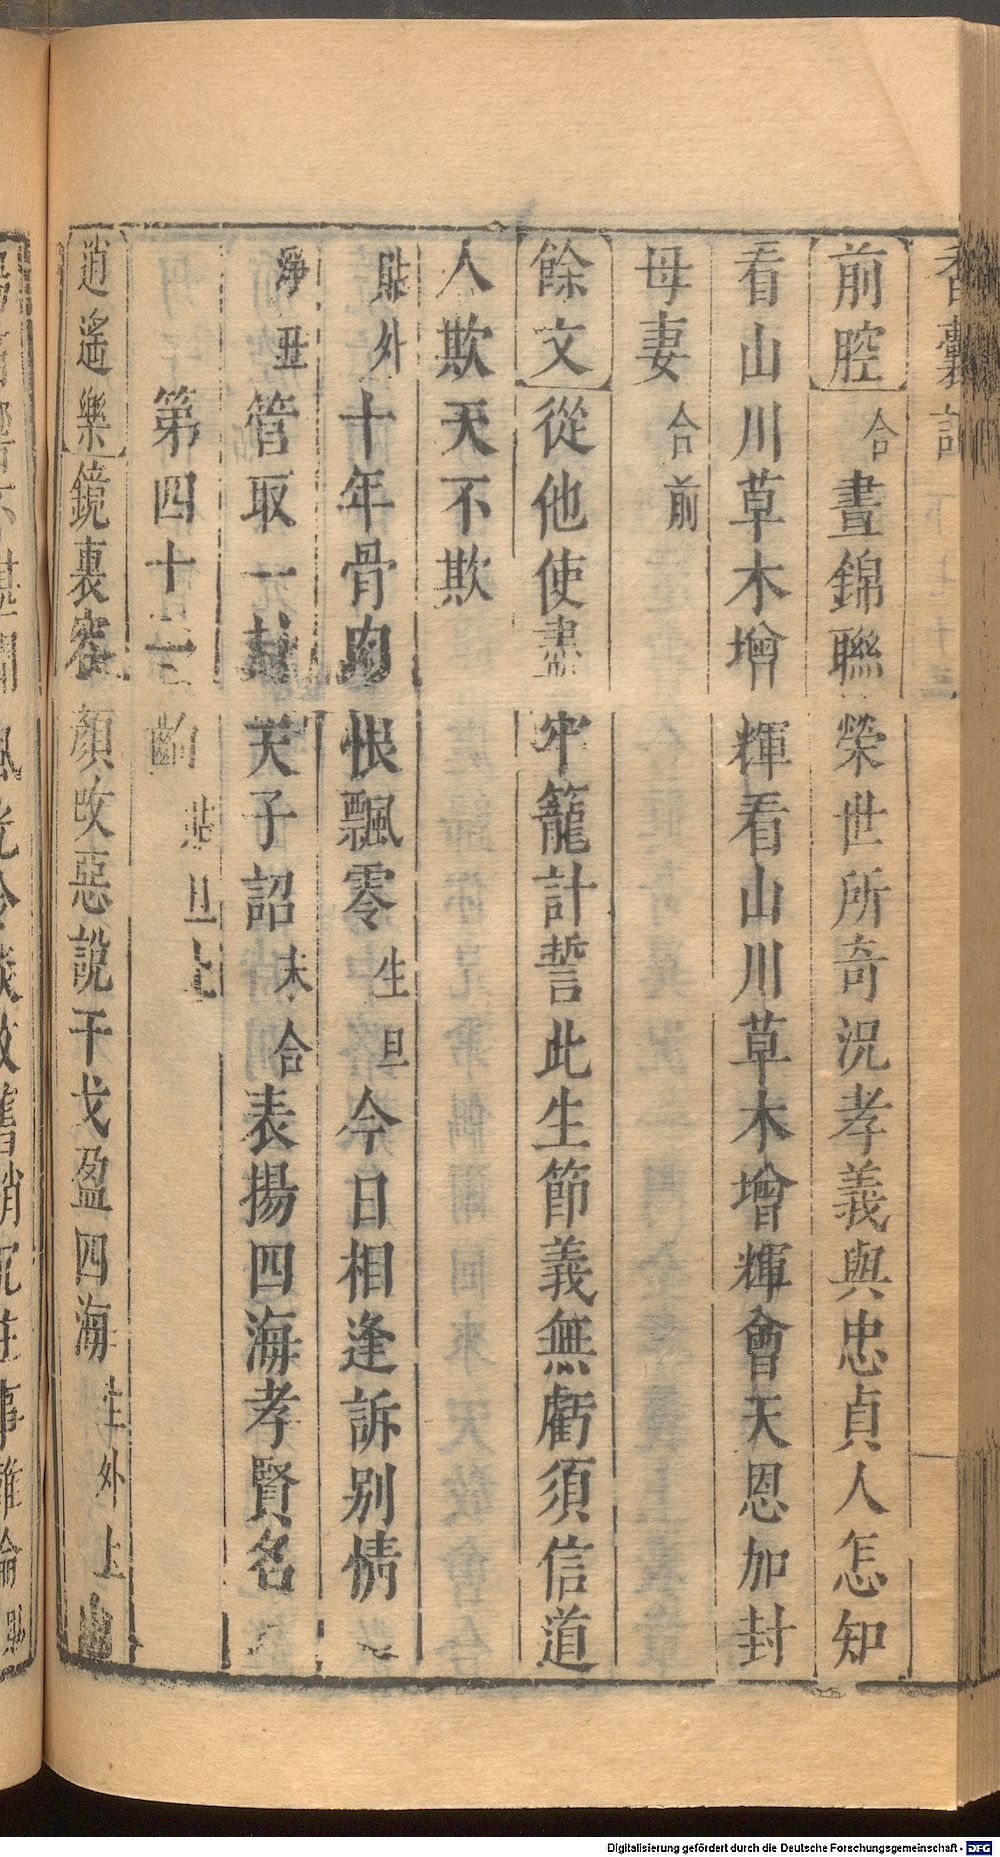 香囊記
前腔 合 晝錦聯榮世所奇況孝義與忠貞人怎知
看山川草木增輝看山川草木增輝會天恩加封
母妻 合前
餘文 從他使盡牢籠計誓此生節義無虧須信道
人欺天不欺
貼外 十年骨肉恨飄零 生旦 今日相逢訴别情
淨丑 管取一封天子詔 末合 表揚四海孝賢名
第四十二齣 貼旦上
逍遙樂 鏡裏容顏改惡說干戈盈四海 生外上
Digitalisierung gefördert durch die Deutsche Forschungsgemeinschaft - DFG